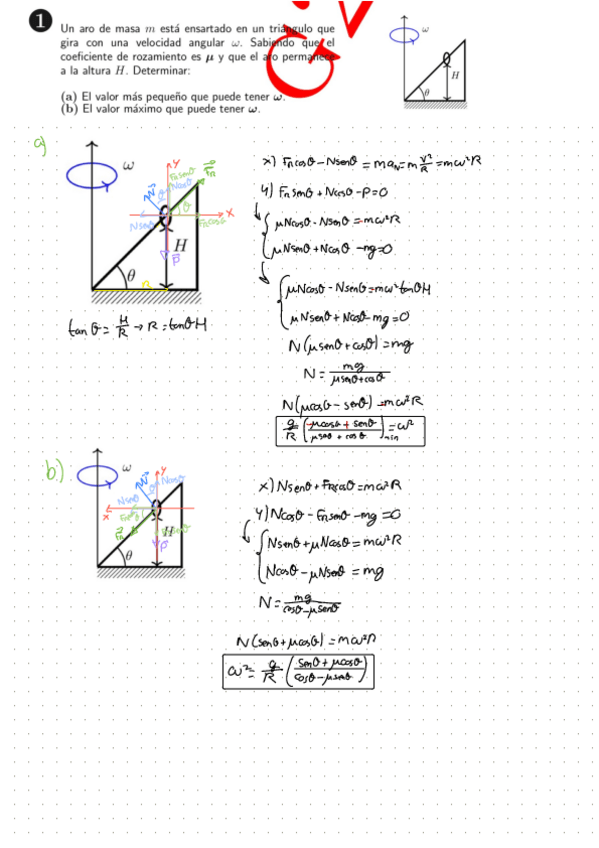 1
Un aro de masa m está ensartado en un triángulo que
gira con una velocidad angular ω. Sabiendo que el
coeficiente de rozamiento es μ y que el aro permanece
a la altura H. Determinar:
(a) El valor más pequeño que puede tener ω.
(b) El valor máximo que puede tener ω.
ω
H
θ
a)
ω
y
x
H
θ
R
tan θ = H/R → R = tanθ H
x) Fr cosθ - N senθ = m aN = m v²/R = mω²R
y) Fr senθ + N cosθ - P = 0
μNcosθ - Nsenθ = -mω²R
μNsenθ + Ncosθ - mg = 0
μNcosθ - Nsenθ = mω² tanθ H
μNsenθ + Ncosθ - mg = 0
N(μsenθ + cosθ) = mg
N = mg/(μsenθ + cosθ)
N(μcosθ - senθ) = -mω²R
g/R ((-μcosθ + senθ)/(μsenθ + cosθ)) = ω² min
b)
ω
y
x
H
θ
x) Nsenθ + Fr cosθ = mω²R
y) Ncosθ - Fr senθ - mg = 0
Nsenθ + μNcosθ = mω²R
Ncosθ - μNsenθ = mg
N = mg/(cosθ - μsenθ)
N(senθ + μcosθ) = mω²R
ω² = g/R ((senθ + μcosθ)/(cosθ - μsenθ))